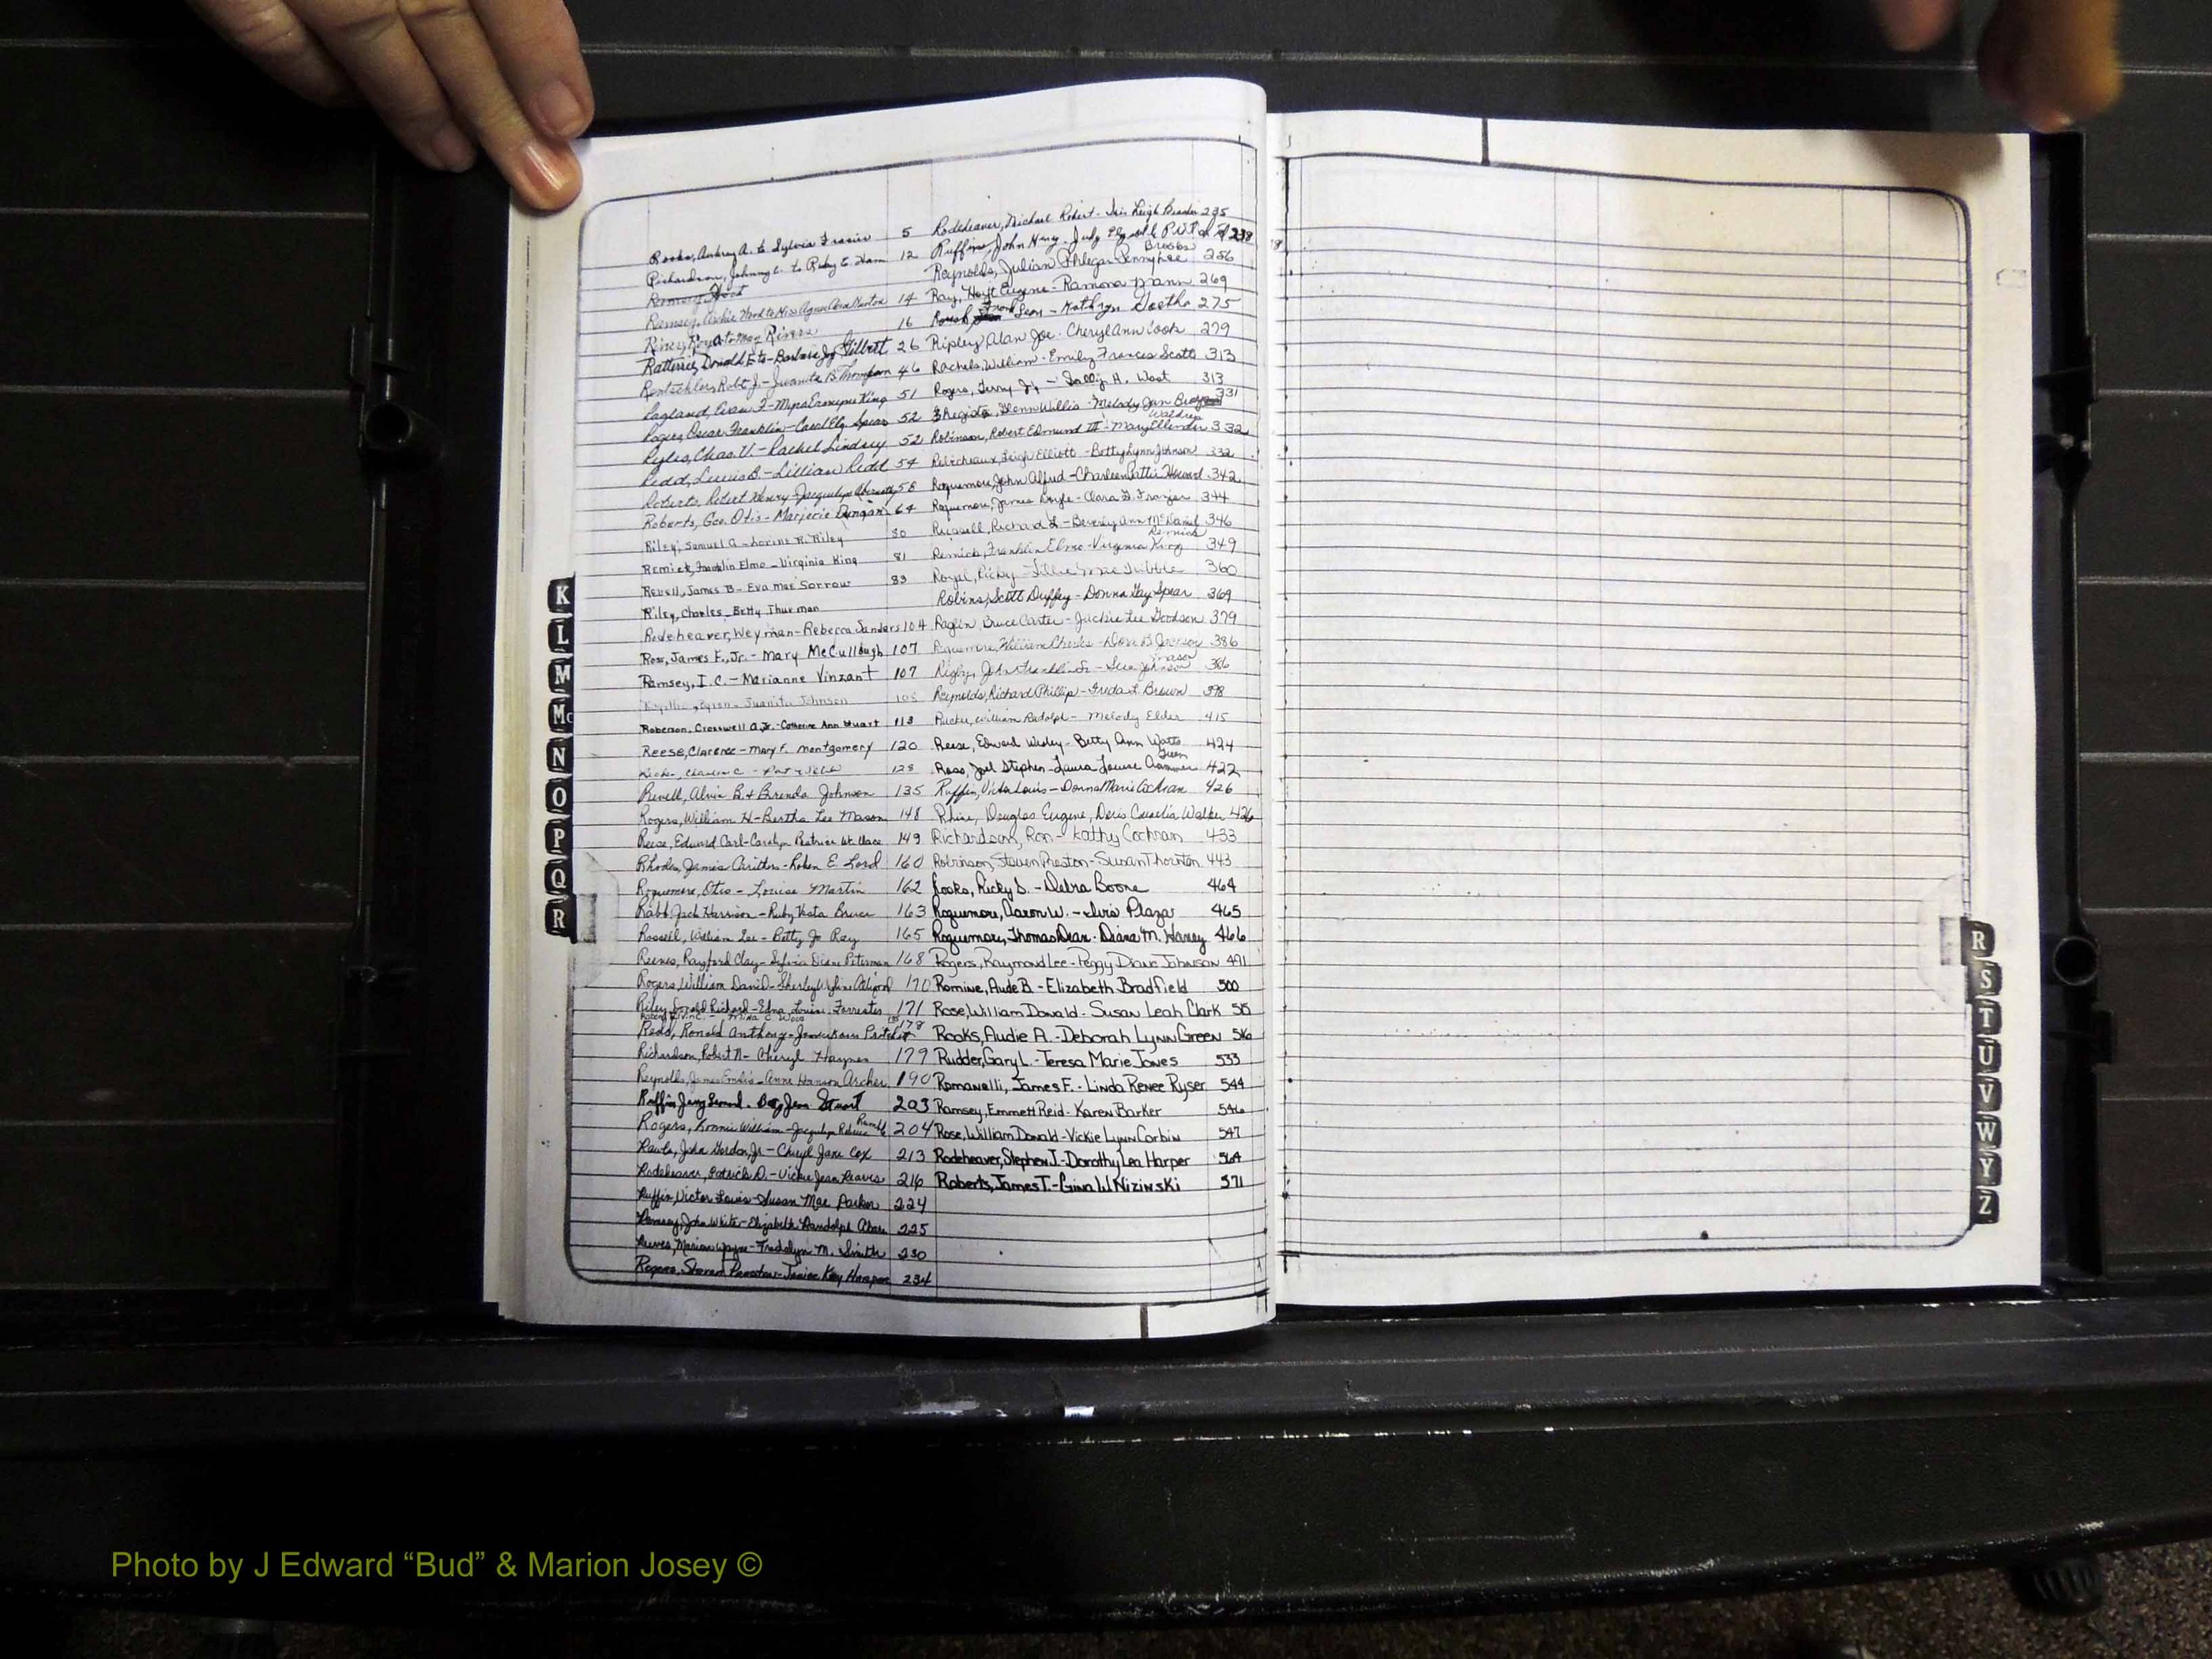 Rooks, Aubrey A. to Sylvia Frazier 5
Richardson, Johnny C. to Ruby E. Ham 12
Ramsey,
Ramsey, Archie Hood to Miss Agnes 14
Riney, Roy a to May Rivers 16
Ratteree, Donald E to - Barbara Joy Gilbert 26
Rentschler, Robt J. - Juanita B Thompson 46
Ragland, Evan F - King 51
Rogers, Oscar Franklin - Carol Elg. Spear 52
Ryles, Chas. V. - Rachel Lindsey 52
Redd, Lewis B. - Lillian Redd 54
Roberts, Robert Henry - Jacquelyn Abernathy 58
Roberts, Geo. Otis - Marjorie Dungan 64
Riley, Samuel A - Lorine R. Riley 80
Remick, Franklin Elmo - Virginia King 81
Revell, James B - Eva Mae Sorrow 83
Riley, Charles - Betty Thurman
Rodeheaver, Weyman - Rebecca Sanders 104
Ross, James F., Jr. - Mary McCullough 107
Ramsey, I.C. - Marianne Vinzant 107
Byron - Juanita Johnson 108
Roberson, Crosswell A, Jr. - Catherine Ann Stuart 113
Reese, Clarence - Mary F. Montgomery 120
128
Revell, Alvin B. + Brenda Johnson 135
Rogers, William H - Bertha Lee Mason 148
Reese, Edward Carl - Carolyn Beatrice Wallace 149
Rhodes, James Carithers - Robin E. Lord 160
Roquemore, Otis - Louise Martin 162
Rabb, Jack Harrison - Ruby Vesta Bruce 163
Russell, William Lee - Betty Jo Ray 165
Reeves, Rayford Clay - Sylvia Diane Peterman 168
Rogers, William David - Shirley 170
Riley, Gerald Richard - Edna Louise Forrester 171
Redd, Ronald Anthony - 178
Richardson, Robert N - Cheryl Haynes 179
Reynolds, James - Anne Hanson Archer 190
Ruffin, Jerry - Jean Stuart 203
Rogers, Ronnie William - Jacquelyn Rebecca 204
Rawls, John Gordon, Jr - Cheryl Jane Cox 213
Rodeheaver, Patrick D. - Vickie Jean Reaves 216
Ruffin, Victor Louis - Susan Mae Parker 224
Ramsey, John White - Elizabeth Randolph 225
Reeves, Marion Wayne - M. Smith 230
Rogers, Steven Preston - Janice Kay Harper 234
Rodeheaver, Michael Robert - Iris Leigh 235
Ruffin, John Henry - Judy 238
Brooks
Reynolds, Julian Phlegar Penny Lee 256
Ray, Hoyt Eugene - Ramona Mann 269
Frank
Leon - Kathryn 275
Ripley, Alan Joe - Cheryl Ann Cook 279
Rachels, William - Emily Frances Scott 313
Rogers, Terry Jr - Sally H. West 313
Glenn Willis - Melody Jan 331
Waldrep
Robinson, Robert Edmund III - Mary Ellender 332
Robicheaux, Leigh Elliott - Betty Lynn Johnson 332
Roquemore, John Alfred - Charleen Pattie Howard 342
Roquemore, James Doyle - Clara D. Frazier 344
Russell, Richard L - Beverly Ann McDaniel 346
Remick
Remick, Franklin Elmo - Virginia King 349
Royal, Ricky - Lillie Mae Tribble 360
Robins, Scott Duffey - Donna Gay Spear 369
Raglin, Bruce Carter - Jackie Lee Goodson 379
Roquemore, William Charles - Jackson 386
Rigby, John Franklin Sr - Johnson 386
Reynolds, Richard Phillip - Freda L. Brown 398
Rucker, William Rudolph - Melody Elder 415
Reese, Edward Wesley - Betty Ann Watts 424
Green
Ross, Joel Stephen - Laura Louise 422
Ruffin, Victor Louis - Donna Marie Cochran 426
Rhine, Douglas Eugene, Doris Walker 426
Richardson, Ron - Kathy Cochran 433
Robinson, Steven Preston - Susan Thornton 443
Rooks, Ricky D. - Debra Boone 464
Roquemore, Aaron W. - Elvia Plaza 465
Roquemore, Thomas Dean - Diana M. Haney 466
Rogers, Raymond Lee - Peggy Diane Johnson 491
Romine, Aude B - Elizabeth Bradfield 500
Rose, William Donald - Susan Leah Clark 515
Rooks, Audie A. - Deborah Lynn Green 516
Rudder, Gary L. - Teresa Marie Jones 533
Romanelli, James F. - Linda Renee Ryser 544
Ramsey, Emmett Reid - Karen Barker 546
Rose, William Donald - Vickie Lynn Corbin 547
Rodeheaver, Stephen J. - Dorothy Lea Harper 564
Roberts, James T. - Gina W Nizinski 571
K
L
M
Mc
N
O
P
Q
R
R
S
T
U
V
W
Y
Z
Photo by J Edward “Bud” & Marion Josey ©